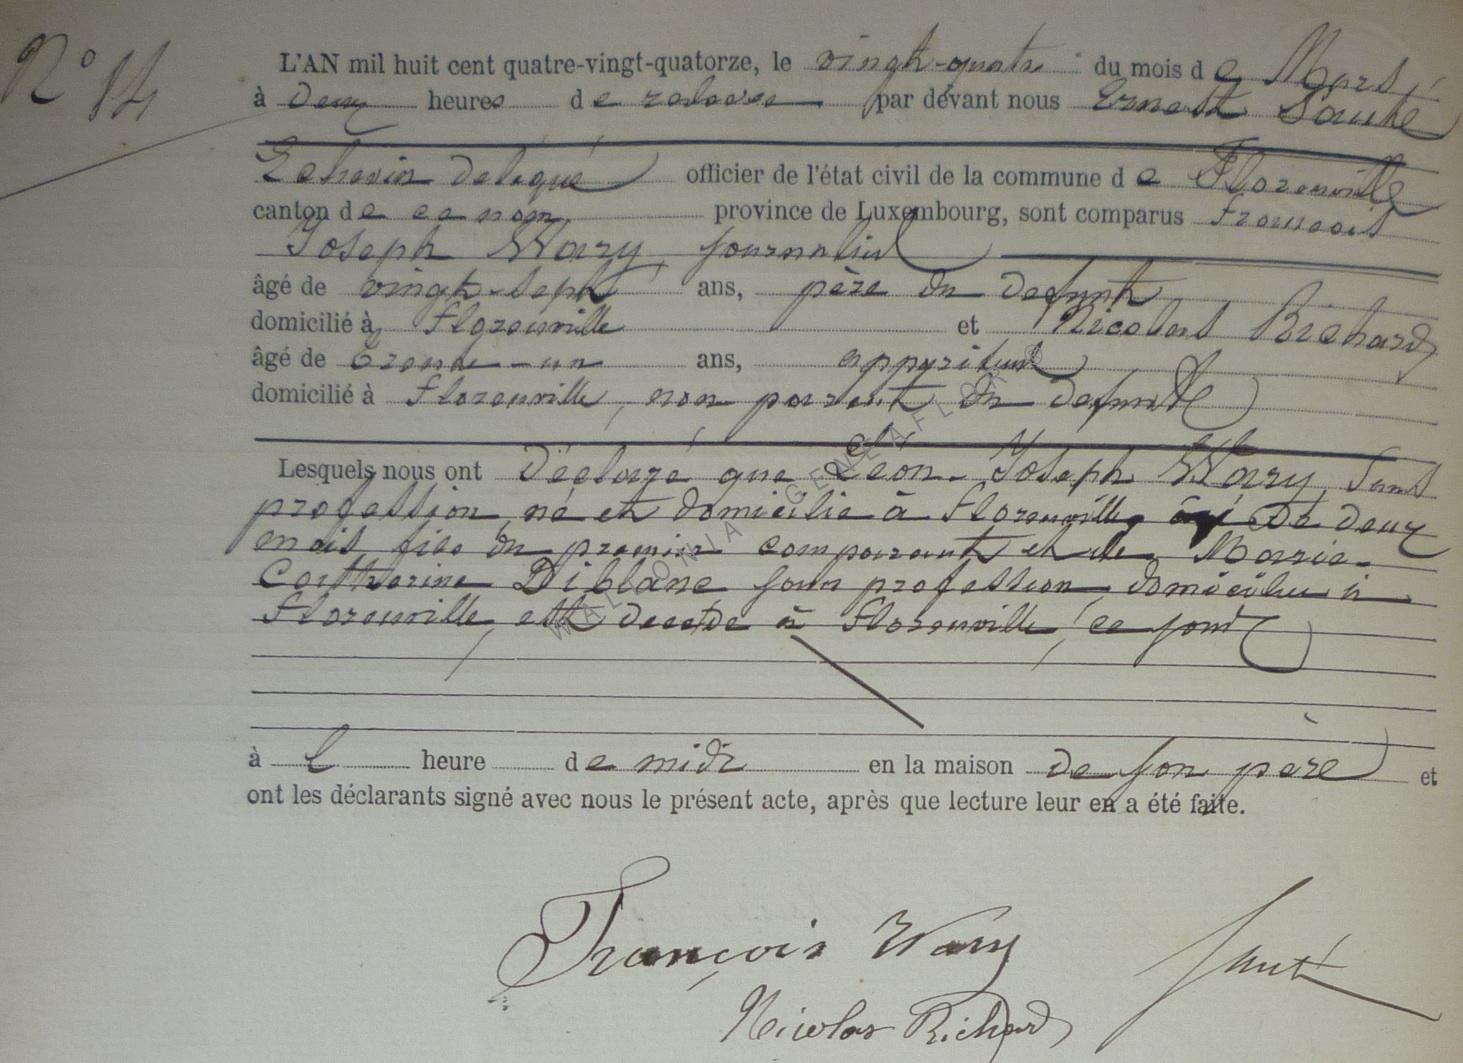 N° 14
L'AN mil huit cent quatre-vingt-quatorze, le vingt-quatre du mois de Mars,
à deux heures de relevée par devant nous Ernest Santé
Echevin délégué officier de l'état civil de la commune de Florenville
canton de ce nom, province de Luxembourg, sont comparus François
Joseph Wary, journalier
âgé de vingt-sept ans, père du defunt
domicilié à Florenville et Nicolas Richard
âgé de trente-un ans,
domicilié à Florenville, non parent du defunt
Lesquels nous ont déclaré que Léon-Joseph Wary, sans
profession, né et domicilié à Florenville, âgé de deux
mois, fils du premier comparant et de Marie-
Catherine Diblanc sans profession, domiciliée à
Florenville, est décédé à Florenville, ce jour
à l heure de midi en la maison de son père et
ont les déclarants signé avec nous le présent acte, après que lecture leur en a été faite.
François Wary
Santé
Nicolas Richard
WALLONIA GENEAFLOR